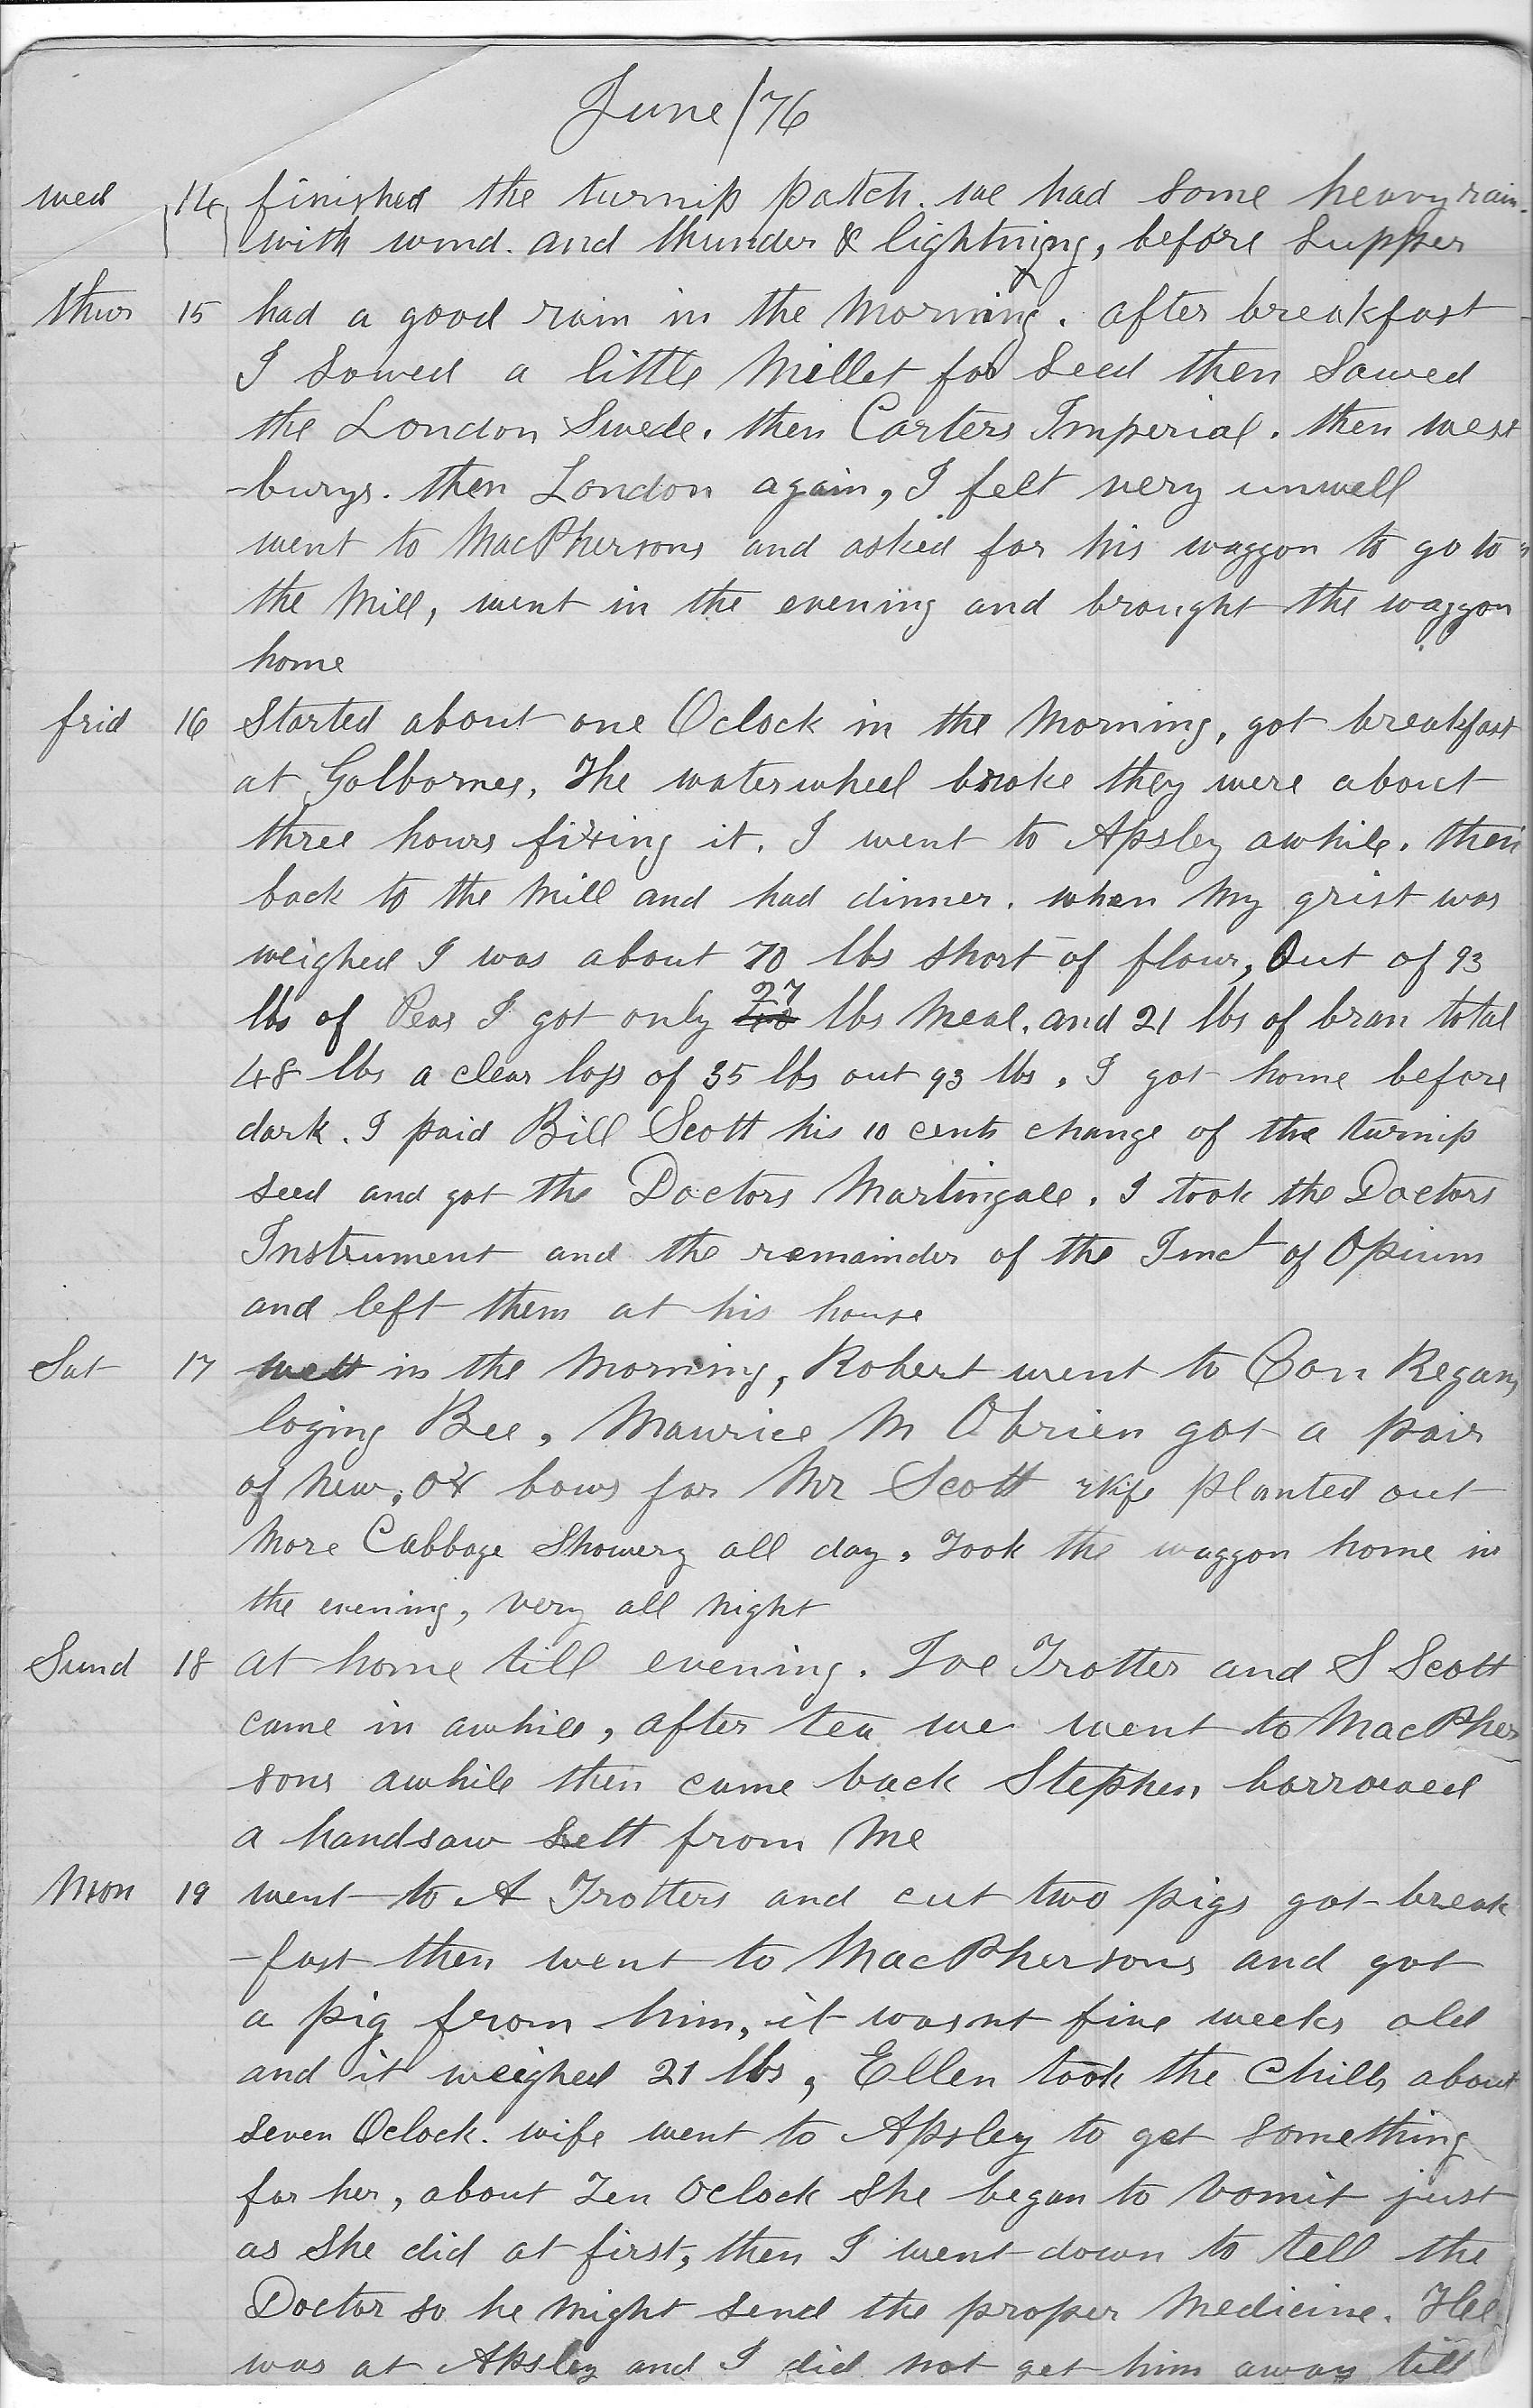 June/76
wed 14 finished the turnip patch. we had some heavy rain.
with wind. and thunder & lightning, before Supper
thur 15 had a good rain in the Morning. after breakfast
I Sowed a little Millet for Seed then Sowed
the London Swede. then Carters Imperial. then west
-burys. then London again, I felt very unwell
went to MacPhersons and asked for his waggon to go to
the Mill, went in the evening and brought the waggon
home
frid 16 Started about one Oclock in the Morning, got breakfast
at Golbornes, The waterwheel broke they were about
three hours fixing it. I went to Apsley awhile. then
back to the Mill and had dinner. when My grist was
weighed I was about 70 lbs Short of flour, Out of 93
lbs of Peas I got only 27 lbs Meal. and 21 lbs of bran total
48 lbs a clear loss of 35 lbs out 93 lbs. I got home before
dark. I paid Bill Scott his 10 cents change of the turnip
seed and got the Doctors Martingale. I took the Doctors
Instrument and the remainder of the Tinct of Opium
and left them at his house
Sat 17 wett in the Morning, Robert went to Con Regans
loging Bee, Maurice M Obrien got a pair
of New, ox bows for Mr Scott wife planted out
More Cabbage Showery all day. Took the waggon home in
the evening, very all night
Sund 18 at home till evening. Joe Trotter and S Scott
came in awhile, after tea we went to MacPher
sons awhile then came back Stephen borrowed
a handsaw Sett from Me
Mon 19 went to A Trotters and cut two pigs got break
-fast then went to MacPhersons and got
a pig from him, it wasnt five weeks old
and it weighed 21 lbs, Ellen took the Chills about
seven Oclock. wife went to Apsley to get something
for her, about Ten Oclock She began to vomit just
as She did at first, then I went down to tell the
Doctor so he Might Send the proper Medicine. He
was at Apsley and I did not get him away till